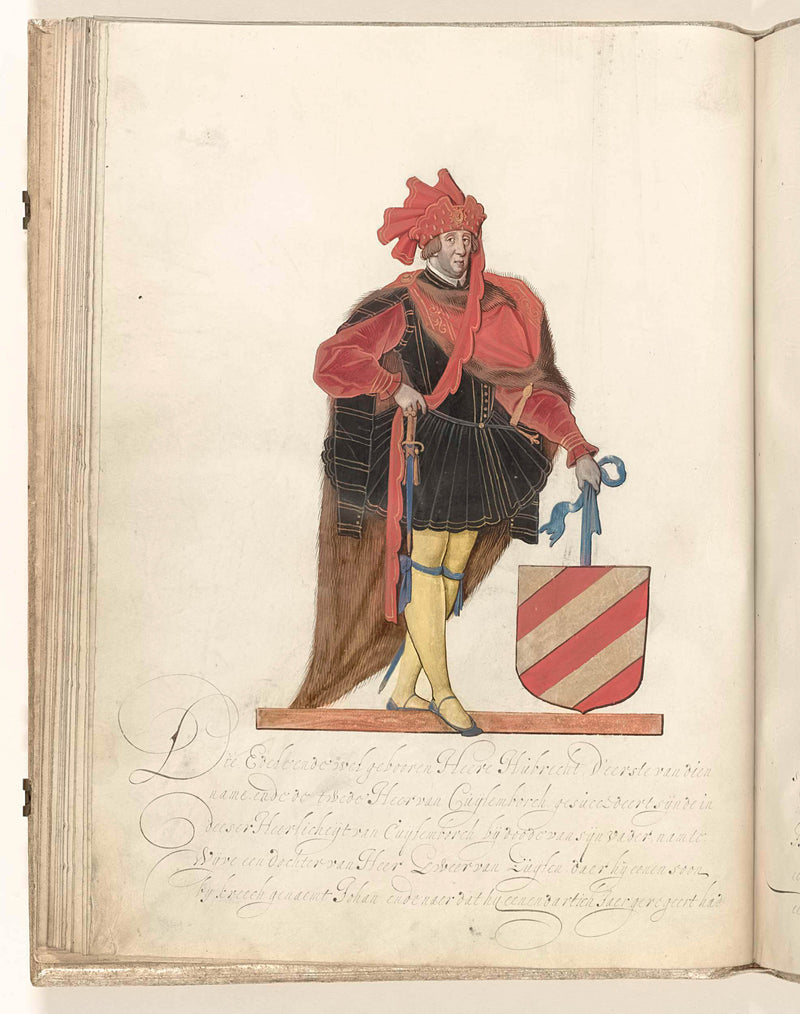 Die Edele ende wel gebooren Heere Hubrecht D'eerste van dien
name, ende de twede Heer van Cuylemborch, gesuccedeert synde in
deeser Heerlicheyt van Cuylemborch by doode van syn vader, namte
Wyve een dochter van Heer van daer hy eenen soon
by kreech genaemt Johan ende naer dat hy eenendartich Jaer geregeert had